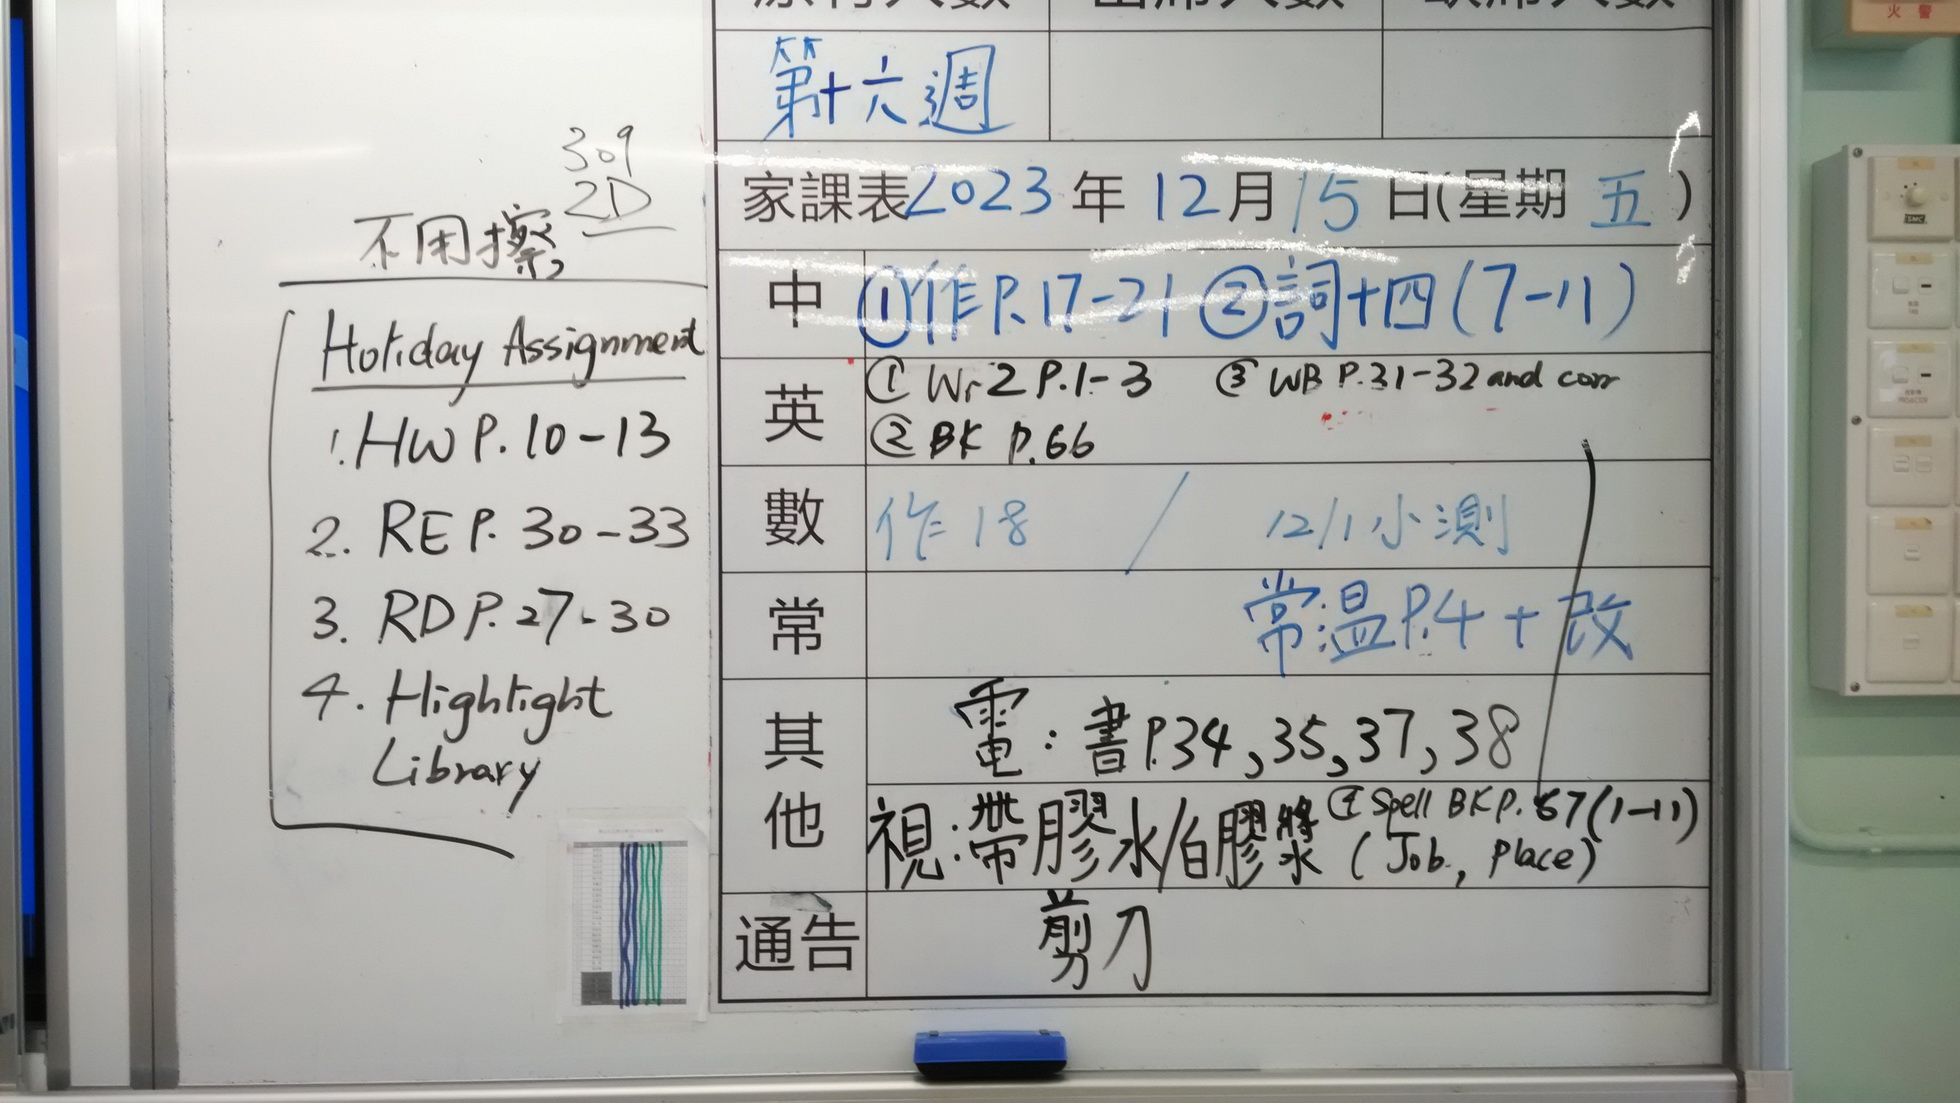 火警
第十六週
家課表2023年12月15日(星期五)
中 ①作P.17-21 ②詞十四(7-11)
英 ① Wr2 P.1-3 ③ WB P.31-32 and corr
② BK P.66
數 作18 / 12/1小測
常 常温P.4+改
其他 電:書P.34,35,37,38
視:帶膠水/白膠漿水 ④ Spell BK P.67(1-11)
(Job, place)
通告 剪刀
309
2D
不用擦,
Holiday Assignment
1. HW P. 10-13
2. RE P. 30-33
3. RD P. 27-30
4. Highlight
Library